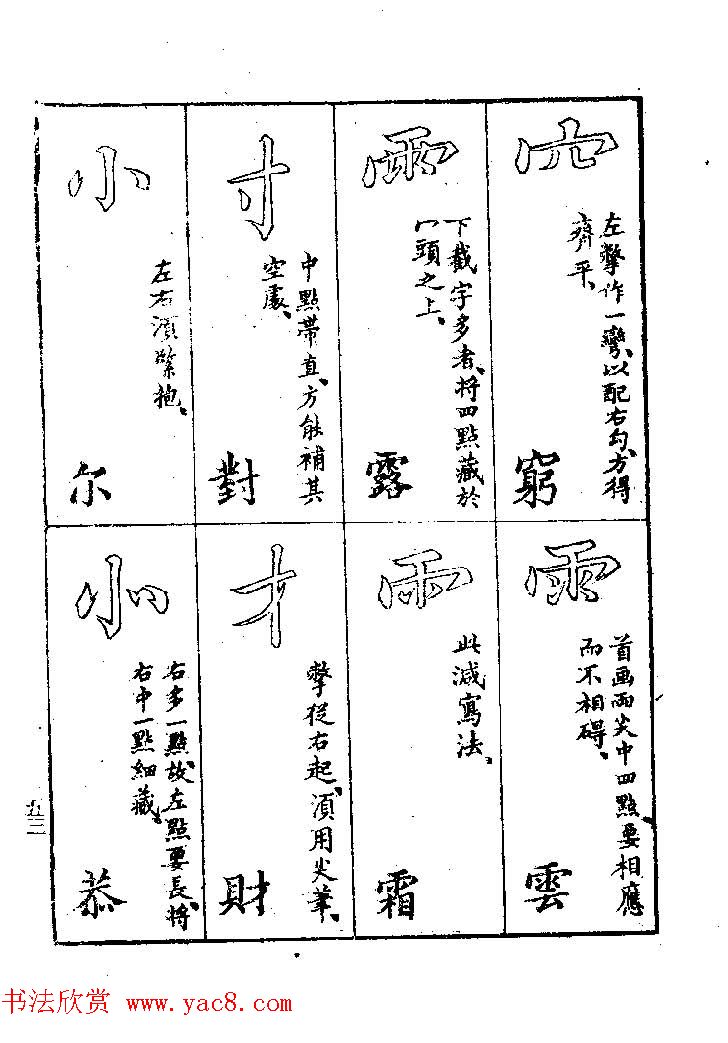 穴
左撆作一彎、以配右勾、方得
齊平、
窮
雨
下截字多者、將四點藏於
冖頭之上、
露
寸
中點帶直、方能補其
空處、
對
小
左右須緊抱、
尔
雨
首画兩尖中四點、要相應
而不相碍、
雲
雨
此減寫法、
霜
才
撆從右起、須用尖筆、
財
㣺
右多一點、故左點要長、將
右中一點細藏、
恭
五三
书法欣赏 www.yac8.com